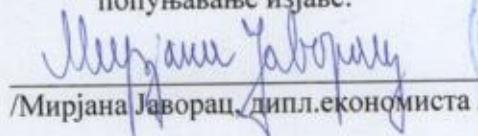 попуњавање изјаве.
Мирјана Јаворац
/Мирјана Јаворац, дипл.економиста